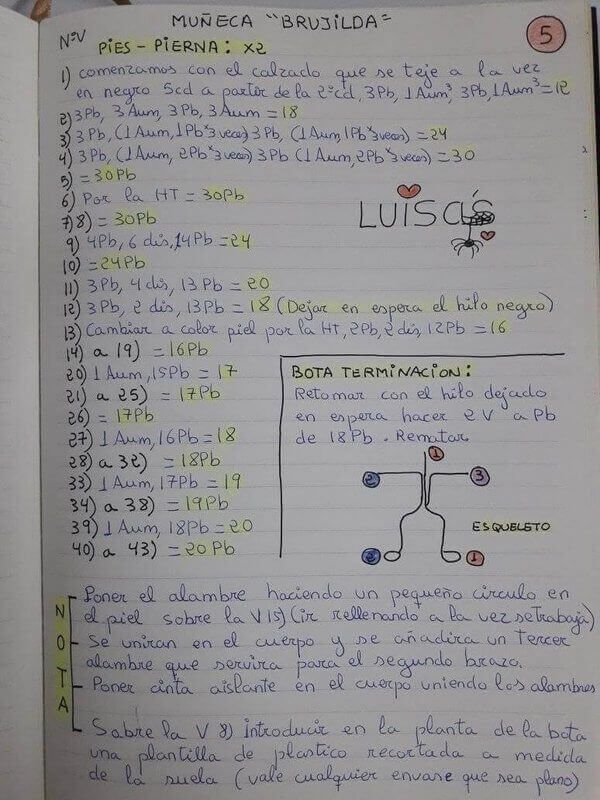 MUÑECA "BRUJILDA"
5
NºV
PIES - PIERNA: x2
1) comenzamos con el calzado que se teje a la vez
en negro 5cd a partir de la 2ºcd, 3Pb, 1Aum³, 3Pb, 1Aum³=12
2) 3Pb, 3Aum, 3Pb, 3Aum = 18
3) 3Pb, (1Aum, 1Pb*3veces) 3Pb, (1Aum, 1Pb*3veces) = 24
4) 3Pb, (1Aum, 2Pb*3veces) 3Pb (1Aum, 2Pb*3veces) = 30
5) = 30Pb
6) Por la HT = 30Pb
7) 8) = 30Pb
LUISA'S
9) 4Pb, 6 dis, 14Pb = 24
10) = 24Pb
11) 3Pb, 4 dis, 13Pb = 20
12) 3Pb, 2 dis, 13Pb = 18 (Dejar en espera el hilo negro)
13) Cambiar a color piel por la HT, 2Pb, 2 dis, 12Pb = 16
14) a 19) = 16Pb
20) 1 Aum, 15Pb = 17
21) a 25) = 17Pb
26) = 17Pb
27) 1 Aum, 16Pb = 18
28) a 32) = 18Pb
33) 1 Aum, 17Pb = 19
34) a 38) = 19Pb
39) 1 Aum, 18Pb = 20
40) a 43) = 20Pb
BOTA TERMINACION:
Retomar con el hilo dejado
en espera hacer 2 V a Pb
de 18Pb. Rematar
1
2 3
ESQUELETO
2 1
NOTA
- Poner el alambre haciendo un pequeño circulo en
el piel sobre la V 15) (ir rellenando a la vez setrabaja)
- Se uniran en el cuerpo y se añadira un tercer
alambre que servira para el segundo brazo.
- Poner cinta aislante en el cuerpo uniendo los alambres
- Sabre la V 8) introducir en la planta de la bota
una plantilla de plastico recortada a medida
de la suela (vale cualquier envase que sea plano)